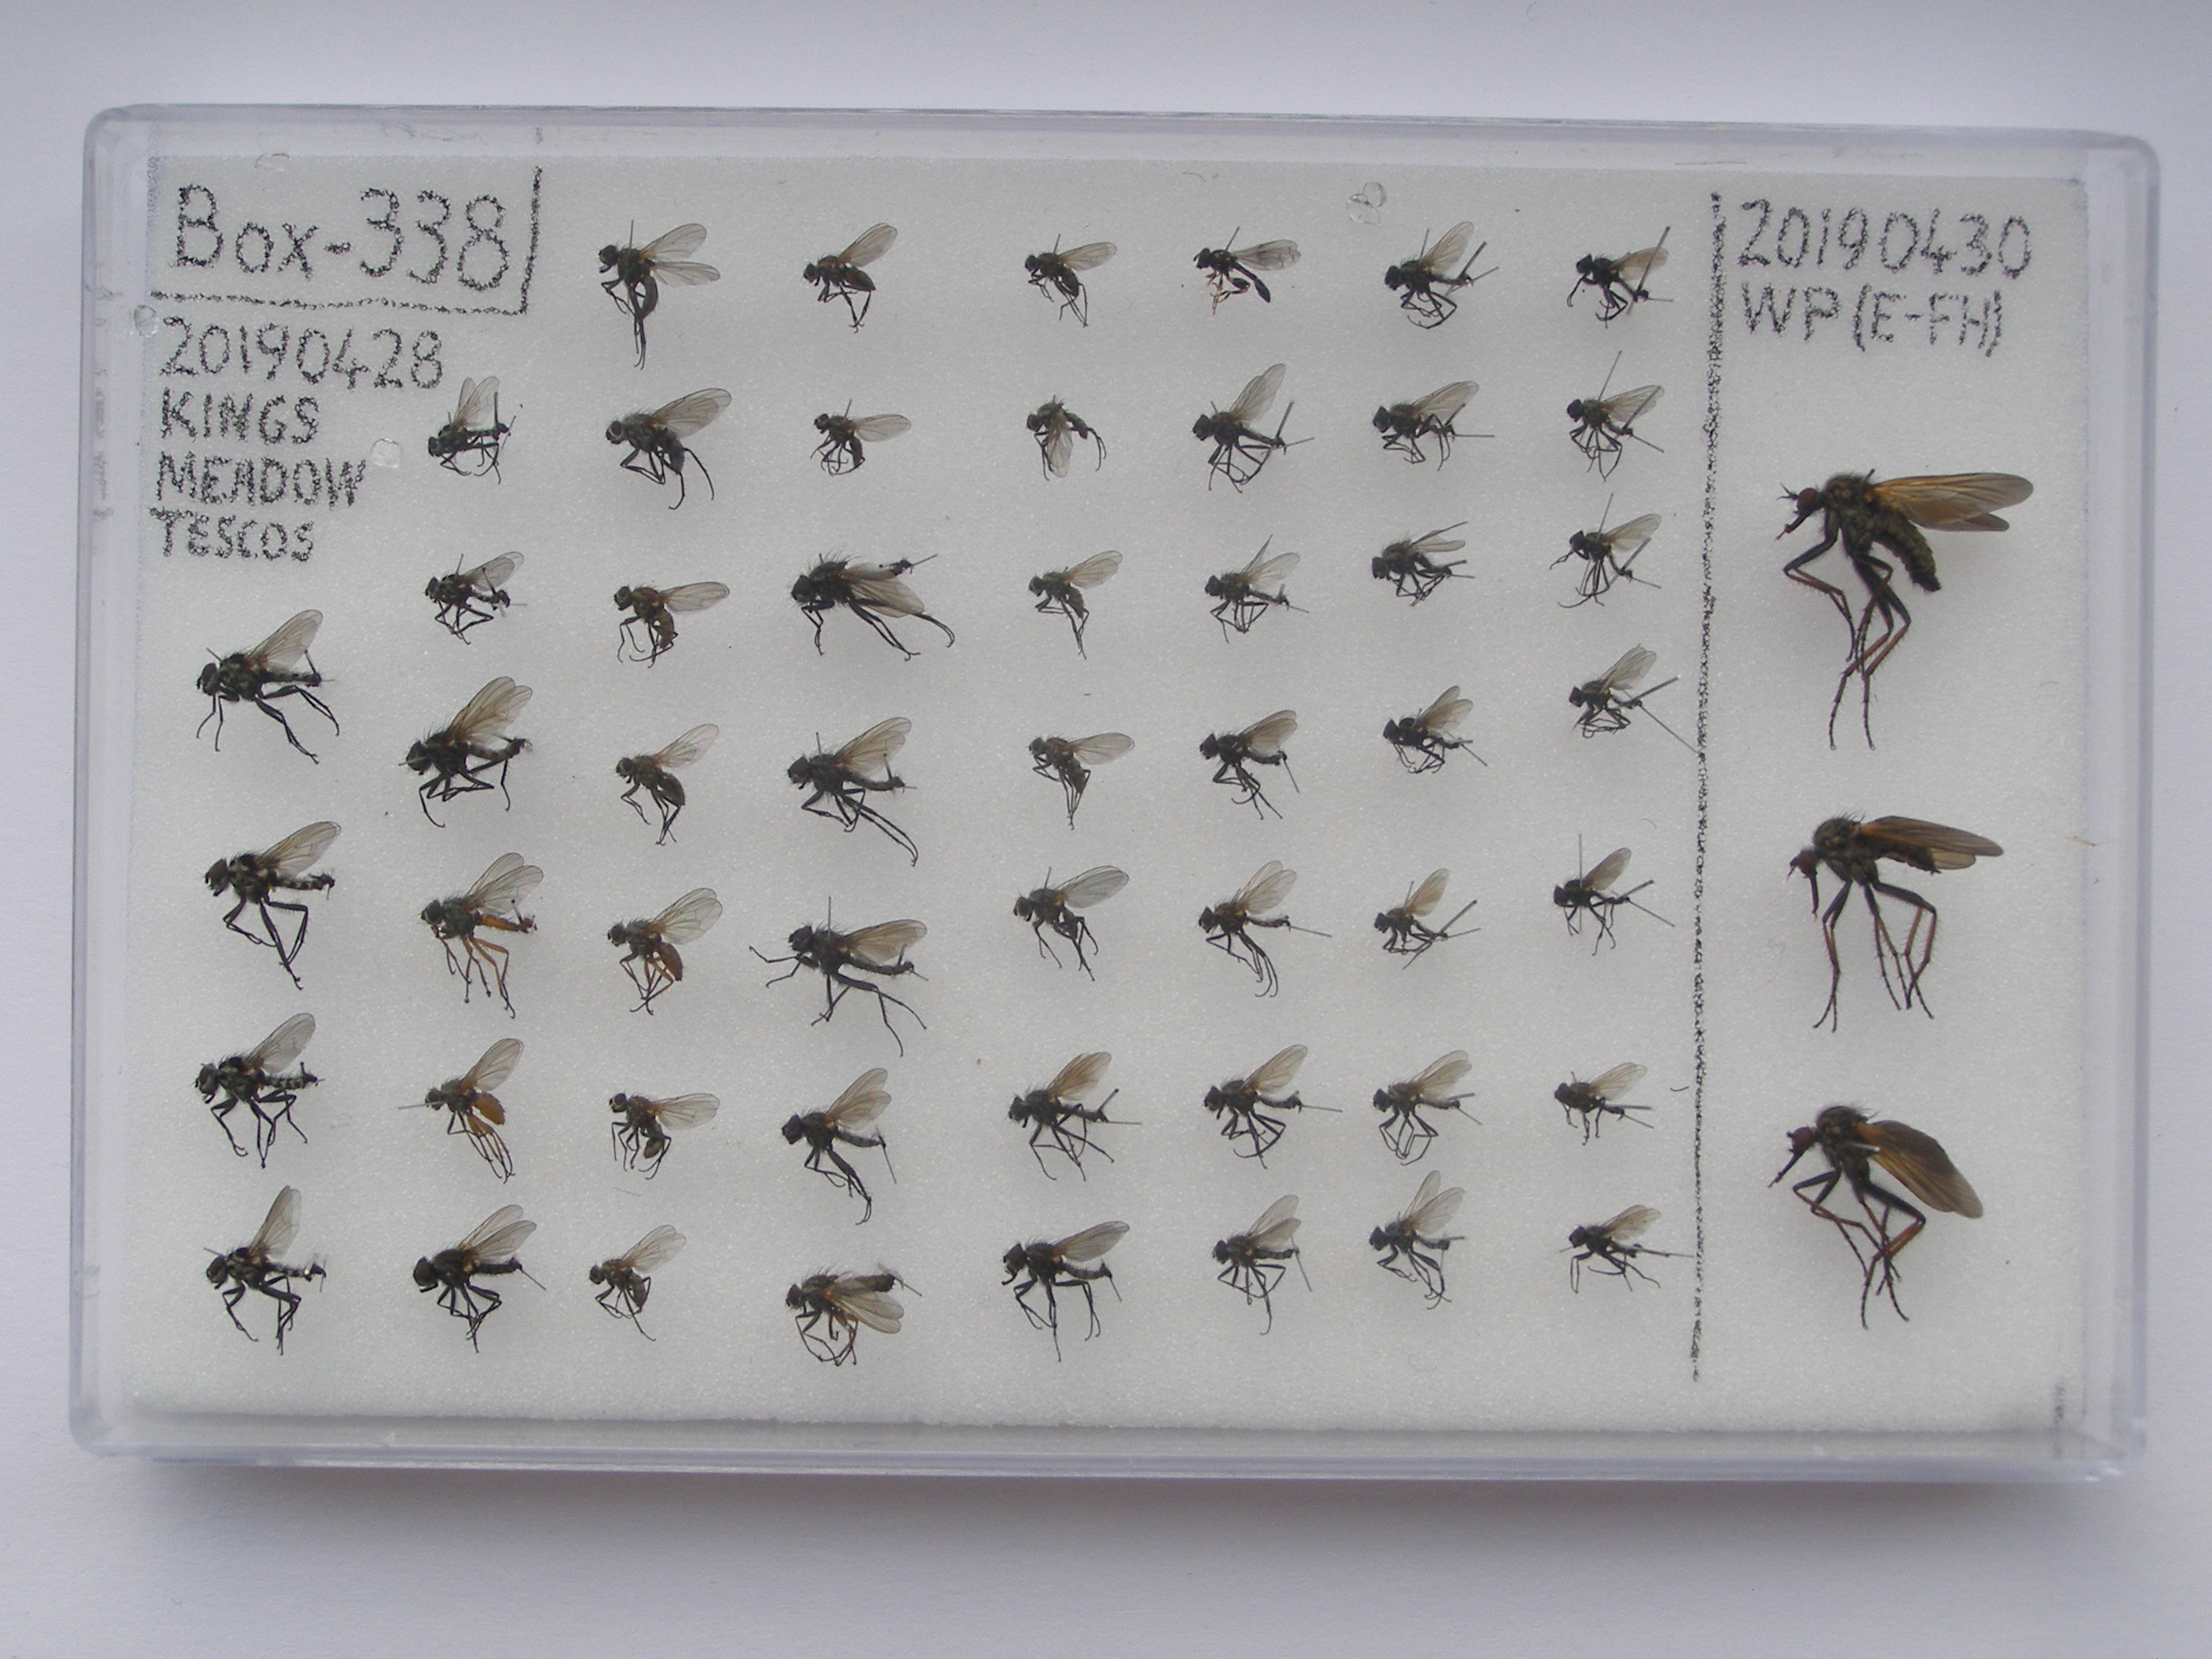 Box-338
20190428
KINGS
MEADOW
TESCOS
20190430
WP (E-FH)